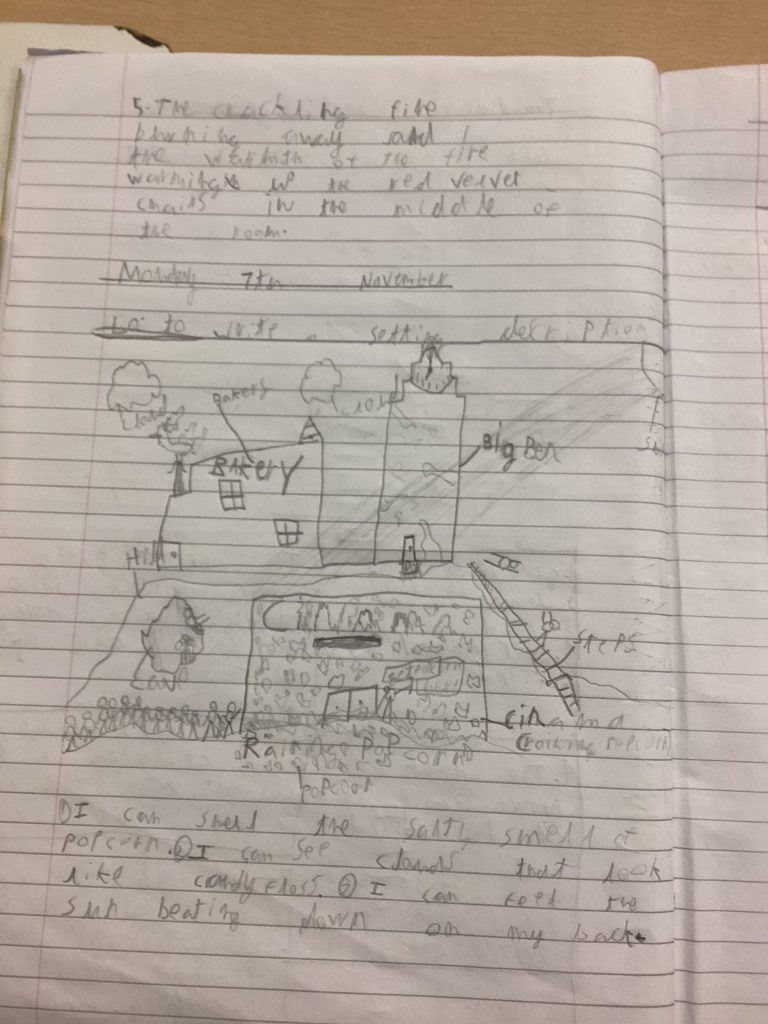 5. The crackling fire
burning away and
the warmth of the fire
warming up the red velvet
chairs in the middle of
the room.
Monday 7th November
LO: to write a setting description
Bakery
BAkerY
Big Ben
Hill
Steps
Cave
Cinama
Raining popcorn
Raining Pop corn
popcorn
①I can smell the salty smell of
popcorn.②I can see clouds that look
like candyfloss.③I can feel the
sun beating down on my back.